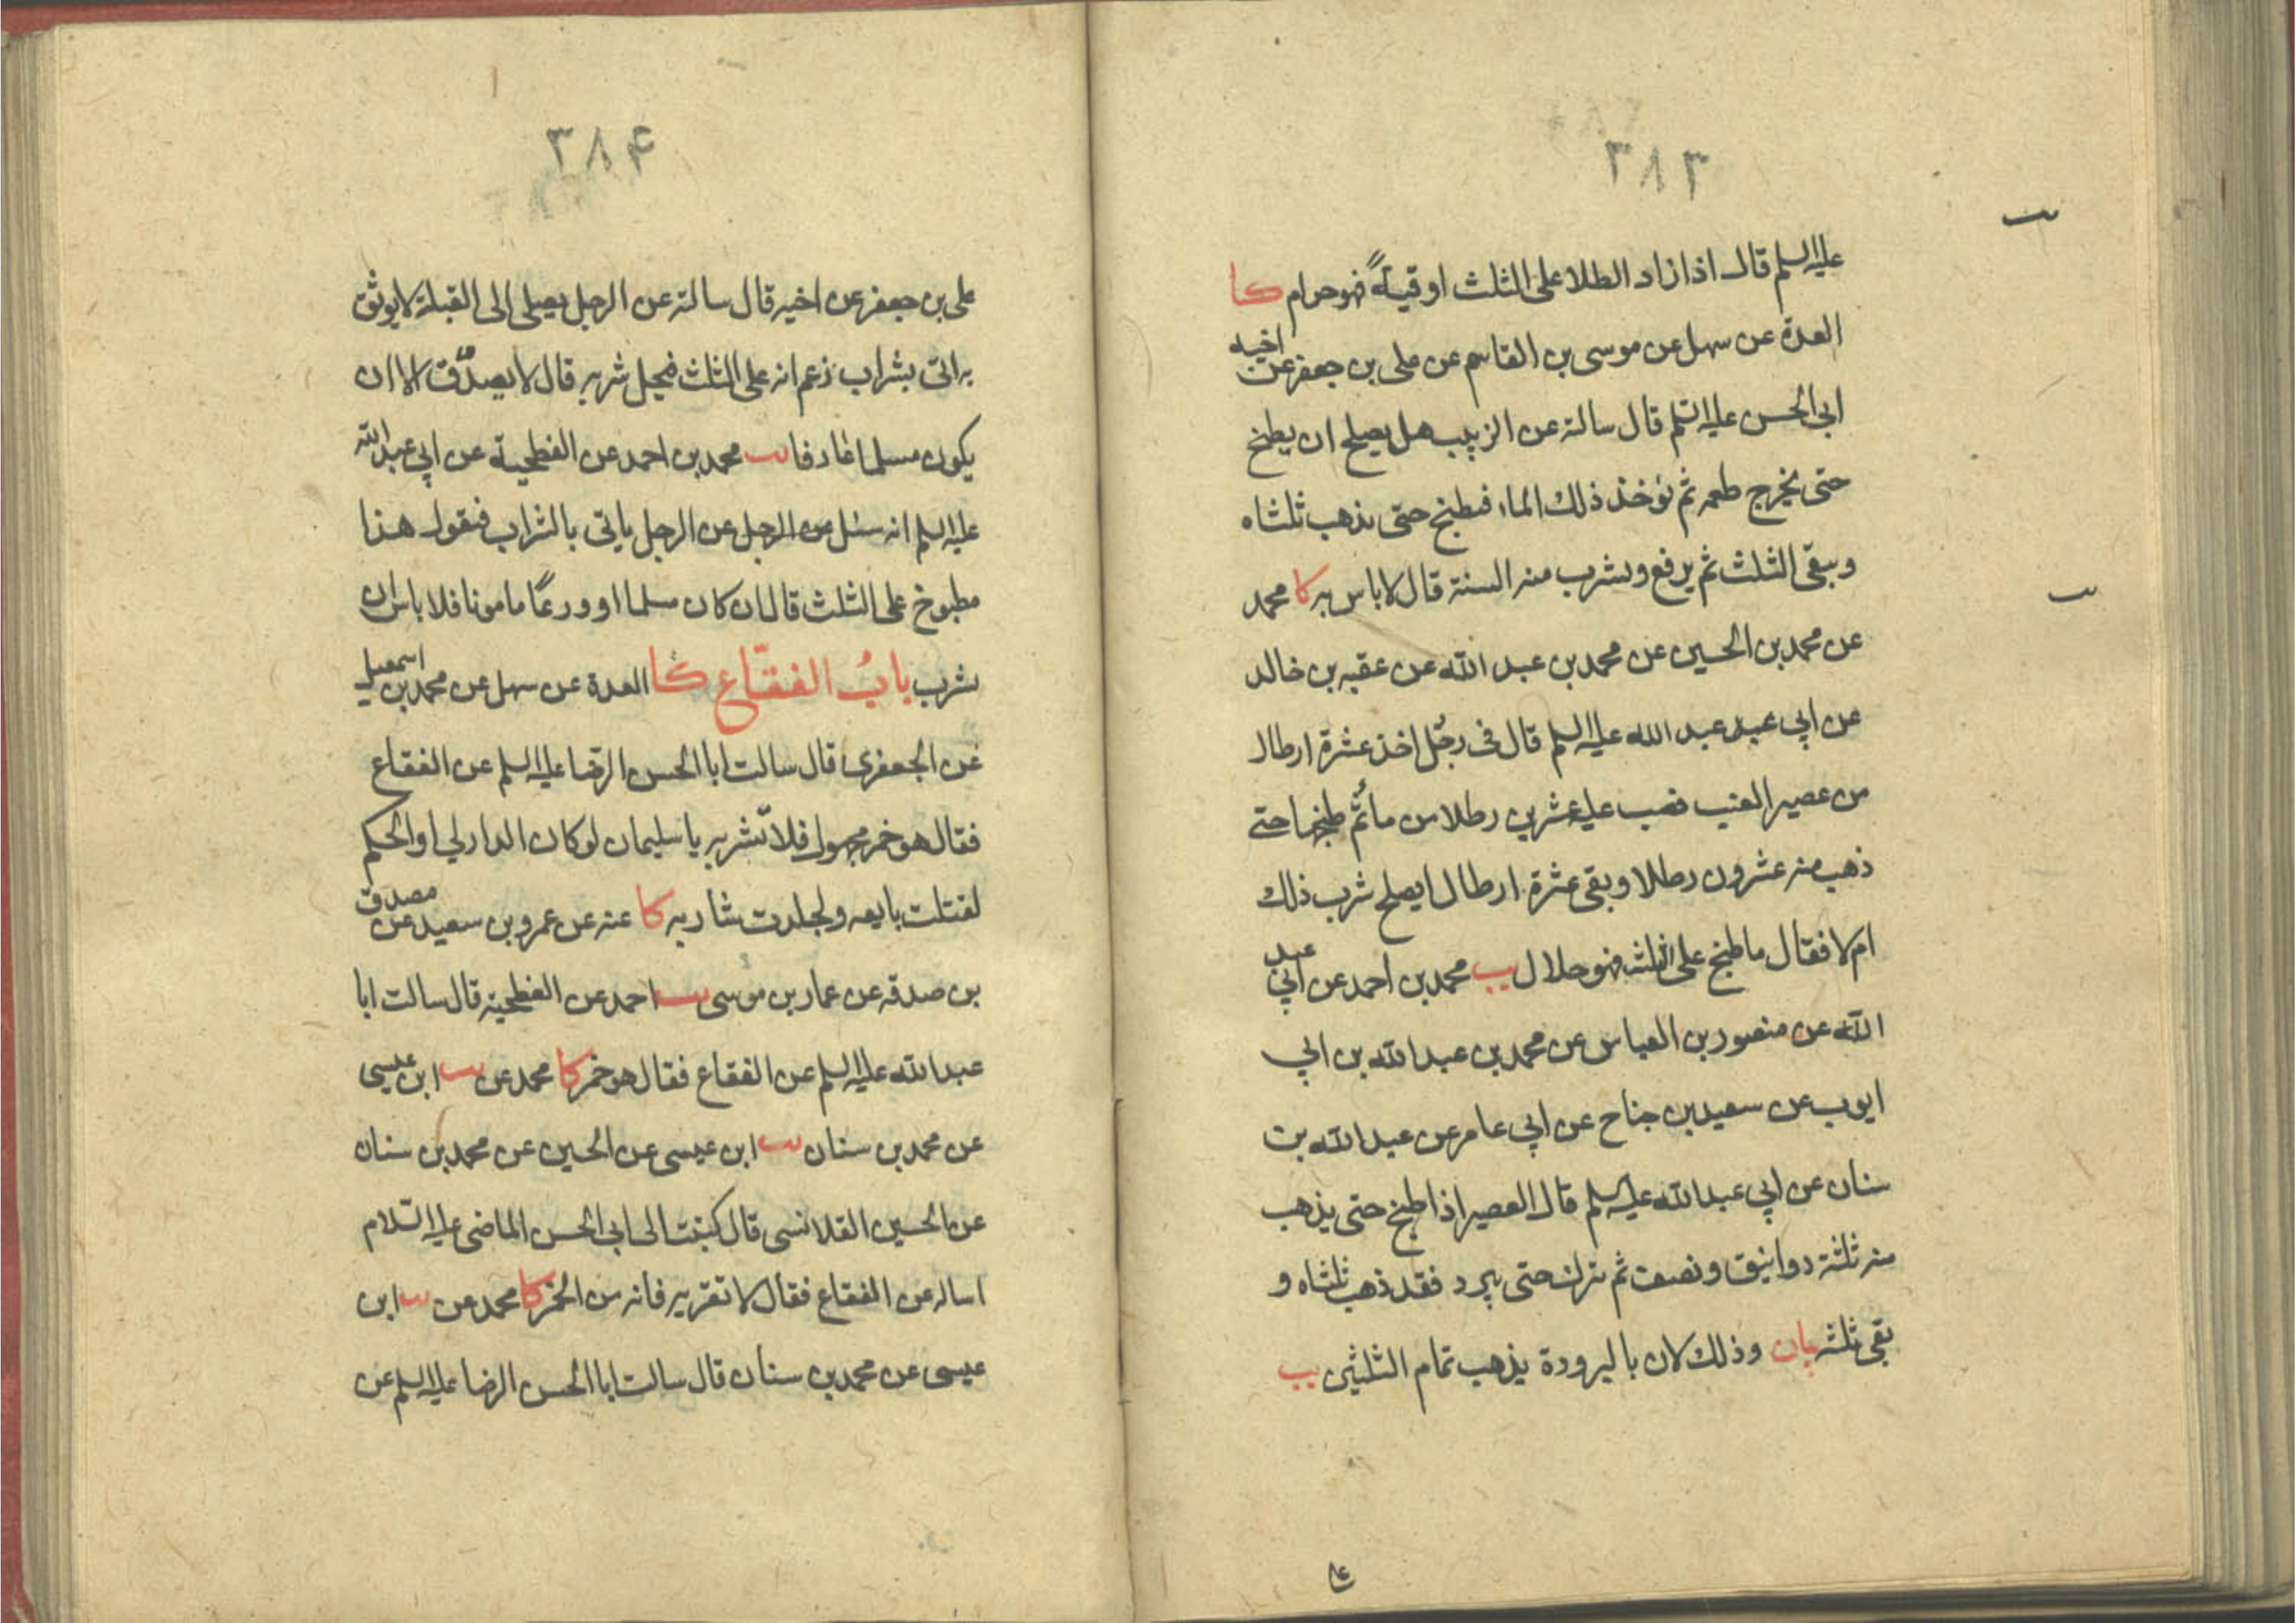 ٣٨٣
عليه السلم قال اذا زاد الطلا على الثلث اوقيةً فهو حرام كا
العدة عن سهل عن موسى بن القاسم عن على بن جعفر عن اخيه
ابى الحسن عليه السلم قال سالته عن الزبيب هل يصلح ان يطبخ
حتى يخرج طعمه ثم يؤخذ ذلك الماء فيطبخ حتى يذهب ثلثاه
ويبقى الثلث ثم يرفع ويشرب منه السنة قال لا باس به كا محمد
عن محمد بن الحسين عن محمد بن عبد الله عن عقبه بن خالد
عن ابي عبد عبد الله عليه السلم قال فى رجل اخذ عشرة ارطال
من عصير العنب فصب عليه عشرين رطلا من ما ثم طبخها حتى
ذهب منه عشرون رطلا وبقى عشرة ارطال ايصلح شرب ذلك
ام لا فقال ما طبخ على الثلث فهو حلال يب محمد بن احمد عن ابي عبد
الله عن منصور بن العباس عن محمد بن عبد الله بن ابي
ايوب عن سعيد بن جناح عن ابي عامر عن عبد الله بن
سنان عن ابي عبد الله عليه السلم قال العصير اذا طبخ حتى يذهب
منه ثلثة دوانيق ونصف ثم يترك حتى يبرد فقد ذهب ثلثاه و
بقى ثلثه بان وذلك لان بالبرودة يذهب تمام الثلثين يب
٣٨۴
على بن جعفر عن اخيه قال سالته عن الرجل يصلى الى القبلة لا يوثق
به اتى بشراب زعم انه على الثلث فيحل شربه قال لا يصدّق الا ان
يكون مسلما عارفا يب محمد بن احمد عن الفطحية عن ابي عبد الله
عليه السلم انه سئل عن الرجل عن الرجل ياتى بالشراب فيقول هذا
مطبوخ على الثلث قال ان كان مسلما او ورعًا مامونا فلا باس ان
يشرب بابُ الفقّاع كا العدة عن سهل عن محمد بن اسمعيل
عن الجعفرى قال سالت ابا الحسن الرضا عليه السلم عن الفقاع
فقال هو خمر مجهول فلا تشربه يا سليمان لو كان الدار لي او الحكم
لقتلت بايعه ولجلدت شاربه كا عنه عن عمرو بن سعيد عن مصدق
بن صدقه عن عمار بن موسى يب احمد عن الفطحية قال سالت ابا
عبد الله عليه السلم عن الفقاع فقال هو خمر كا محمد عن يب ابن عيسى
عن محمد بن سنان يب ابن عيسى عن الحسين عن محمد بن سنان
عن الحسين القلانسى قال كتبت الى ابى الحسن الماضى عليه السلام
اساله عن الفقاع فقال لا تقربه فانه من الخمر كا محمد عن يب ابن
عيسى عن محمد بن سنان قال سالت ابا الحسن الرضا عليه السلم عن